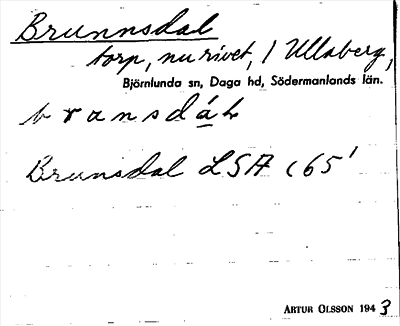 Brunnsdal
torp, nu rivet, / Ullaberg,
Björnlunda sn, Daga hd, Södermanlands län.
Brunsdal LSA c 65'
ARTUR OLSSON 1943